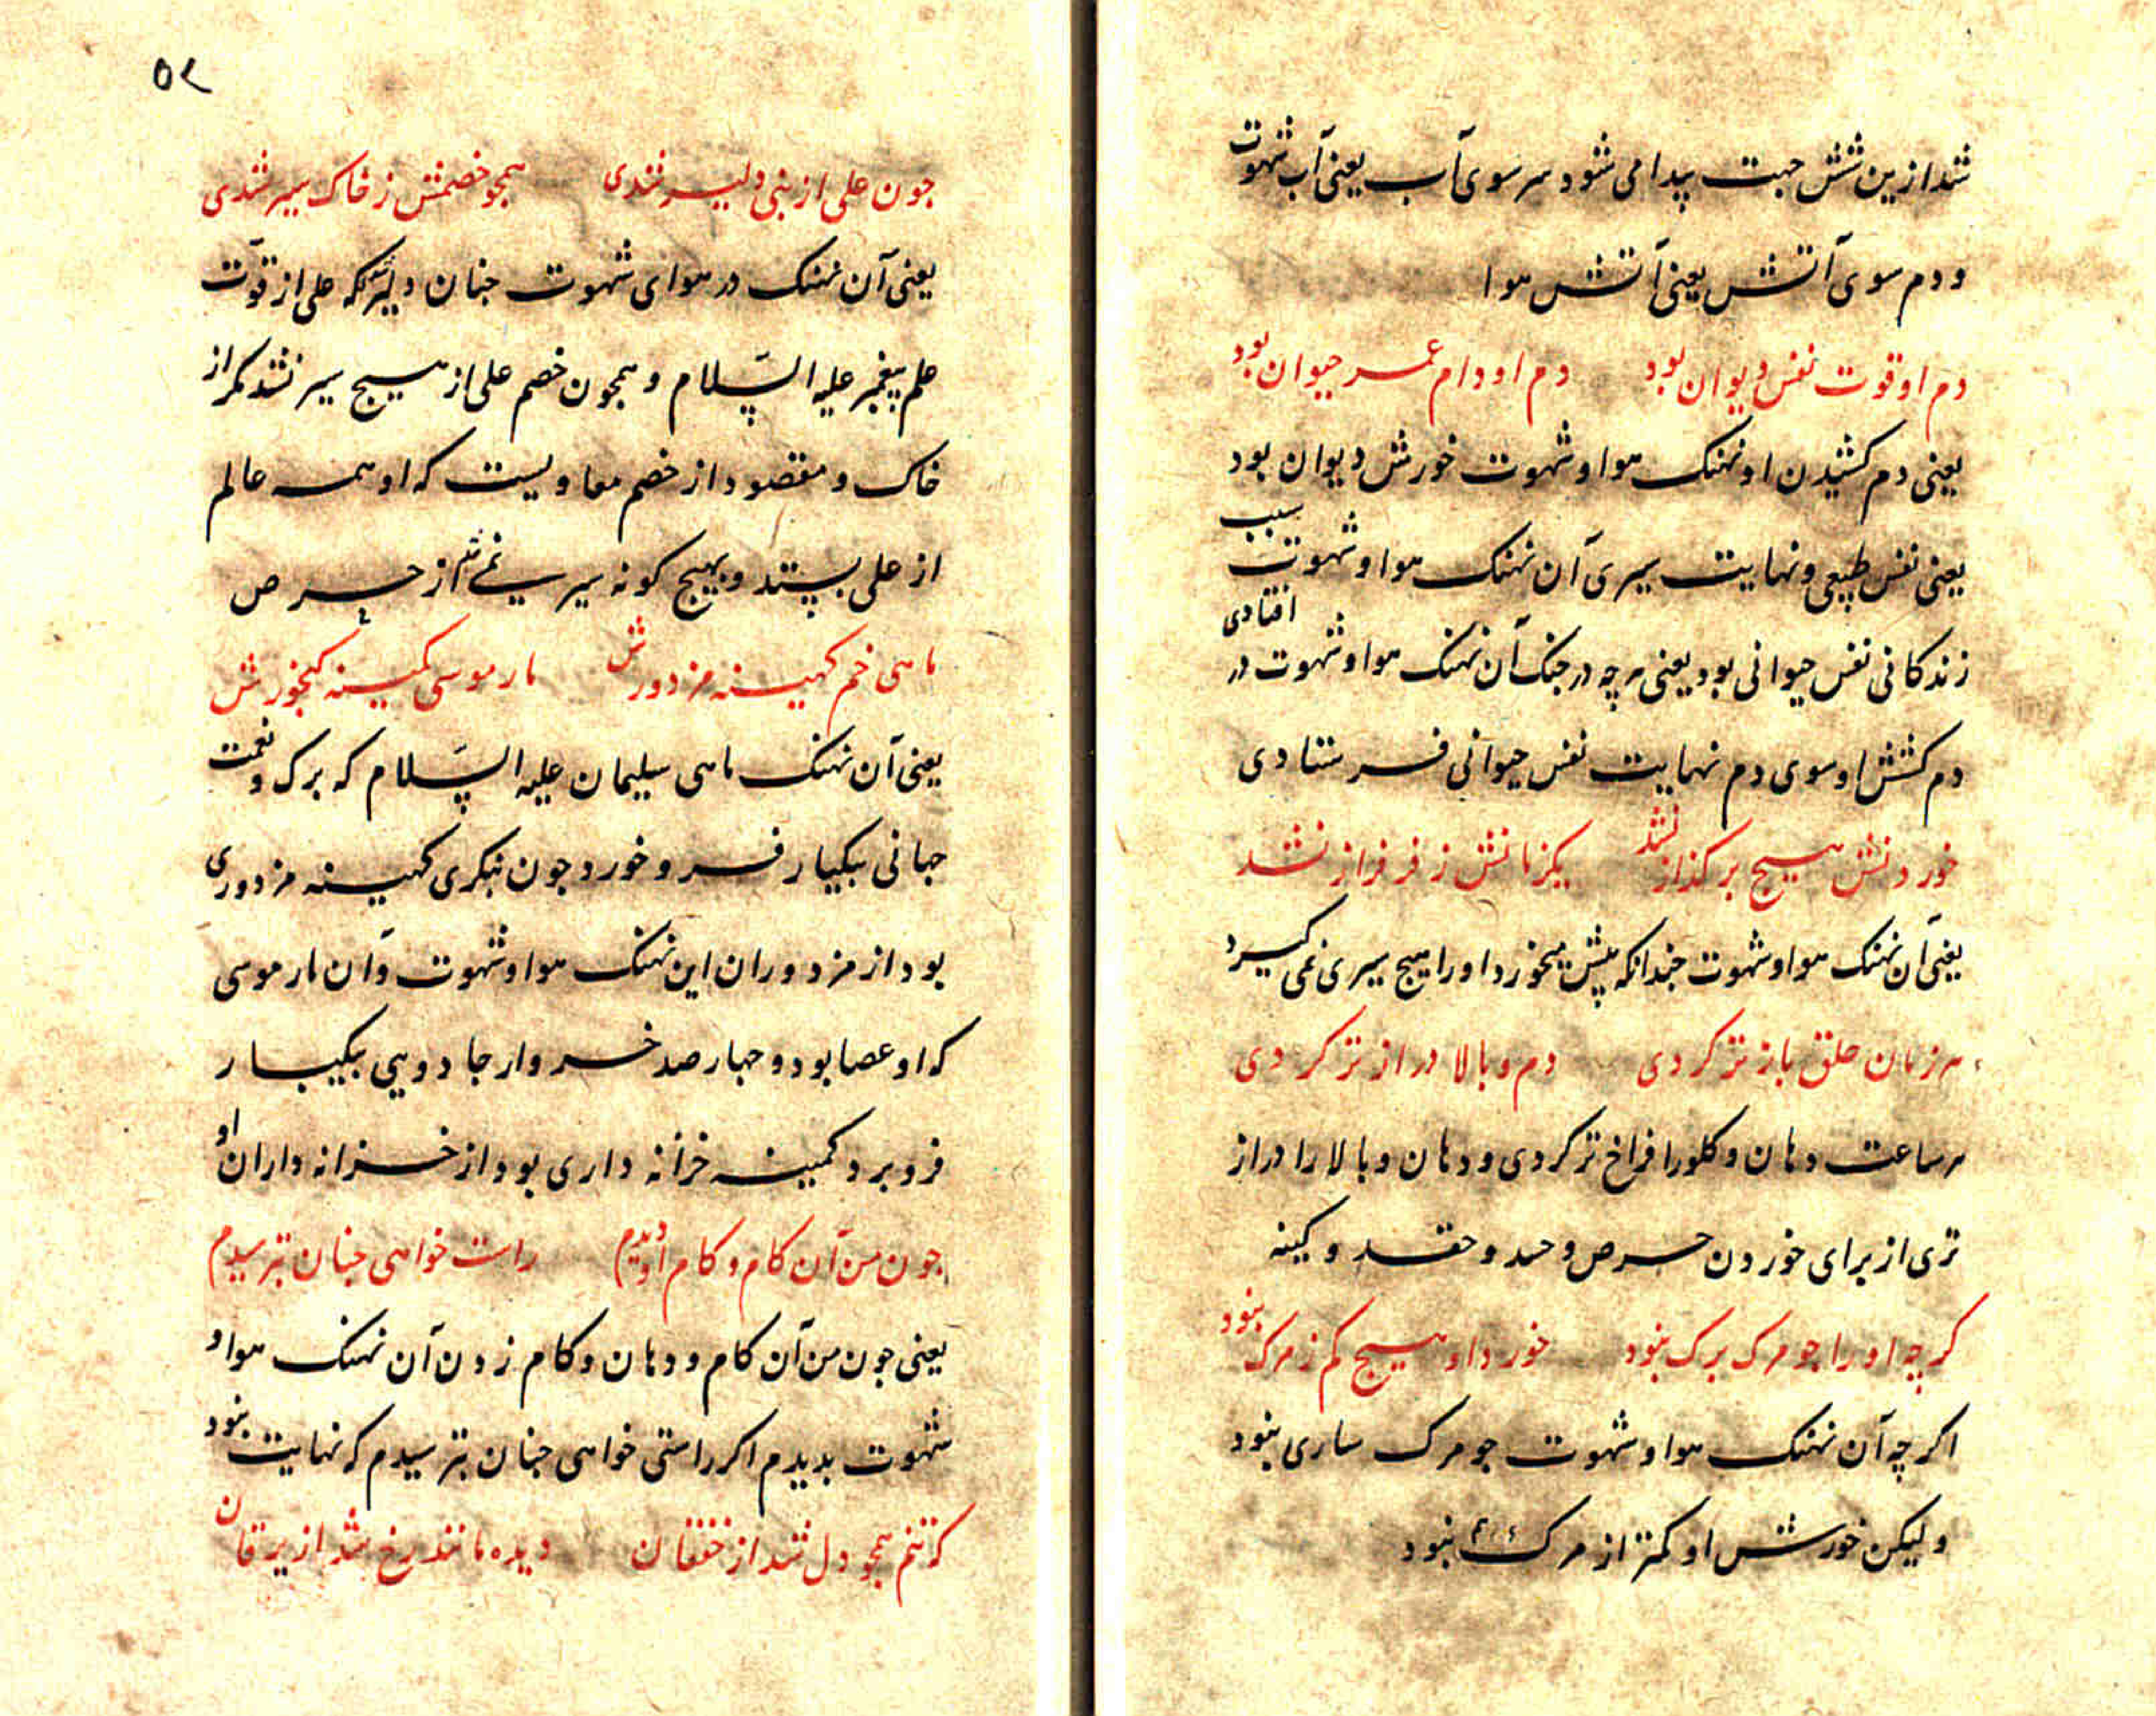 شد ازین شش جهت پیدا می شود سر سوی آب یعنی آب شهوت
و دم سوی آتش یعنی آتش هوا
دم او قوت نفس دیوان بود دم او دام عمر حیوان بود
یعنی دم کشیدن او نهنک هوا و شهوت خورش دیوان بود
یعنی نفس طبیعی و نهایت سیری آن نهنک هوا و شهوت سبب
زندکانی نفس حیوانی بود یعنی هرچه در جنک آن نهنک هوا و شهوت در افتادی
دم کشش او سوی دم نهایت نفس حیوانی فرستادی
خوردنش هیچ بر کذاز نشد یکزمانش ز فر فراز نشد
یعنی آن نهنک هوا و شهوت جندانکه پیش میخورد او را هیچ سیری نمی کیرد
هر زمان حلق باز تر کردی دم و بالا دراز تر کردی
هر ساعت دهان و کلو را فراخ تر کردی و دهان و بالا را دراز
تری از برای خوردن حرص و حسد و حقد و کینه
کرچه او را جو مرک برک نبود خورد او هیچ کم ز مرک نبود
اکرچه آن نهنک هوا و شهوت جو مرک ساری نبود
ولیکن خورش او کمتر از مرک نبود
۵۸
جون علی از نبی دلیر شدی همجو خصمش ز خاک سیر شدی
یعنی آن نهنک در هوای شهوت جنان دلیر که علی از قوت
علم پیغمبر علیه السلام و همجون خصم علی از هیچ سیر نشد مکر از
خاک و مقصود از خصم معاویست که او همه عالم
از علی بستد و بهیچ کونه سیر نمی شد از حرص
ماهی خم کهینه مزدورش مار موسی کمینه کنجورش
یعنی آن نهنک ماهی سلیمان علیه السلام که برک و نعمت
جهانی بیکبار فرو خورد جون بنکری کهینه مزدوری
بود از مزدوران این نهنک هوا و شهوت و آن مار موسی
که او عصا بود و جهار صد خروار جادویی بیکبار
فرو برد کمینه خزانه داری بود از خزانه داران او
جون من آن کام و کام او دیدم راست خواهی جنان بترسیدم
یعنی جون من آن کام و دهان و کام زدن آن نهنک هوا و
شهوت بدیدم اکر راستی خواهی جنان بترسیدم که نهایت نبود
که تنم همجو دل شد از خفقان دیده مانند رخ شد از یرقان